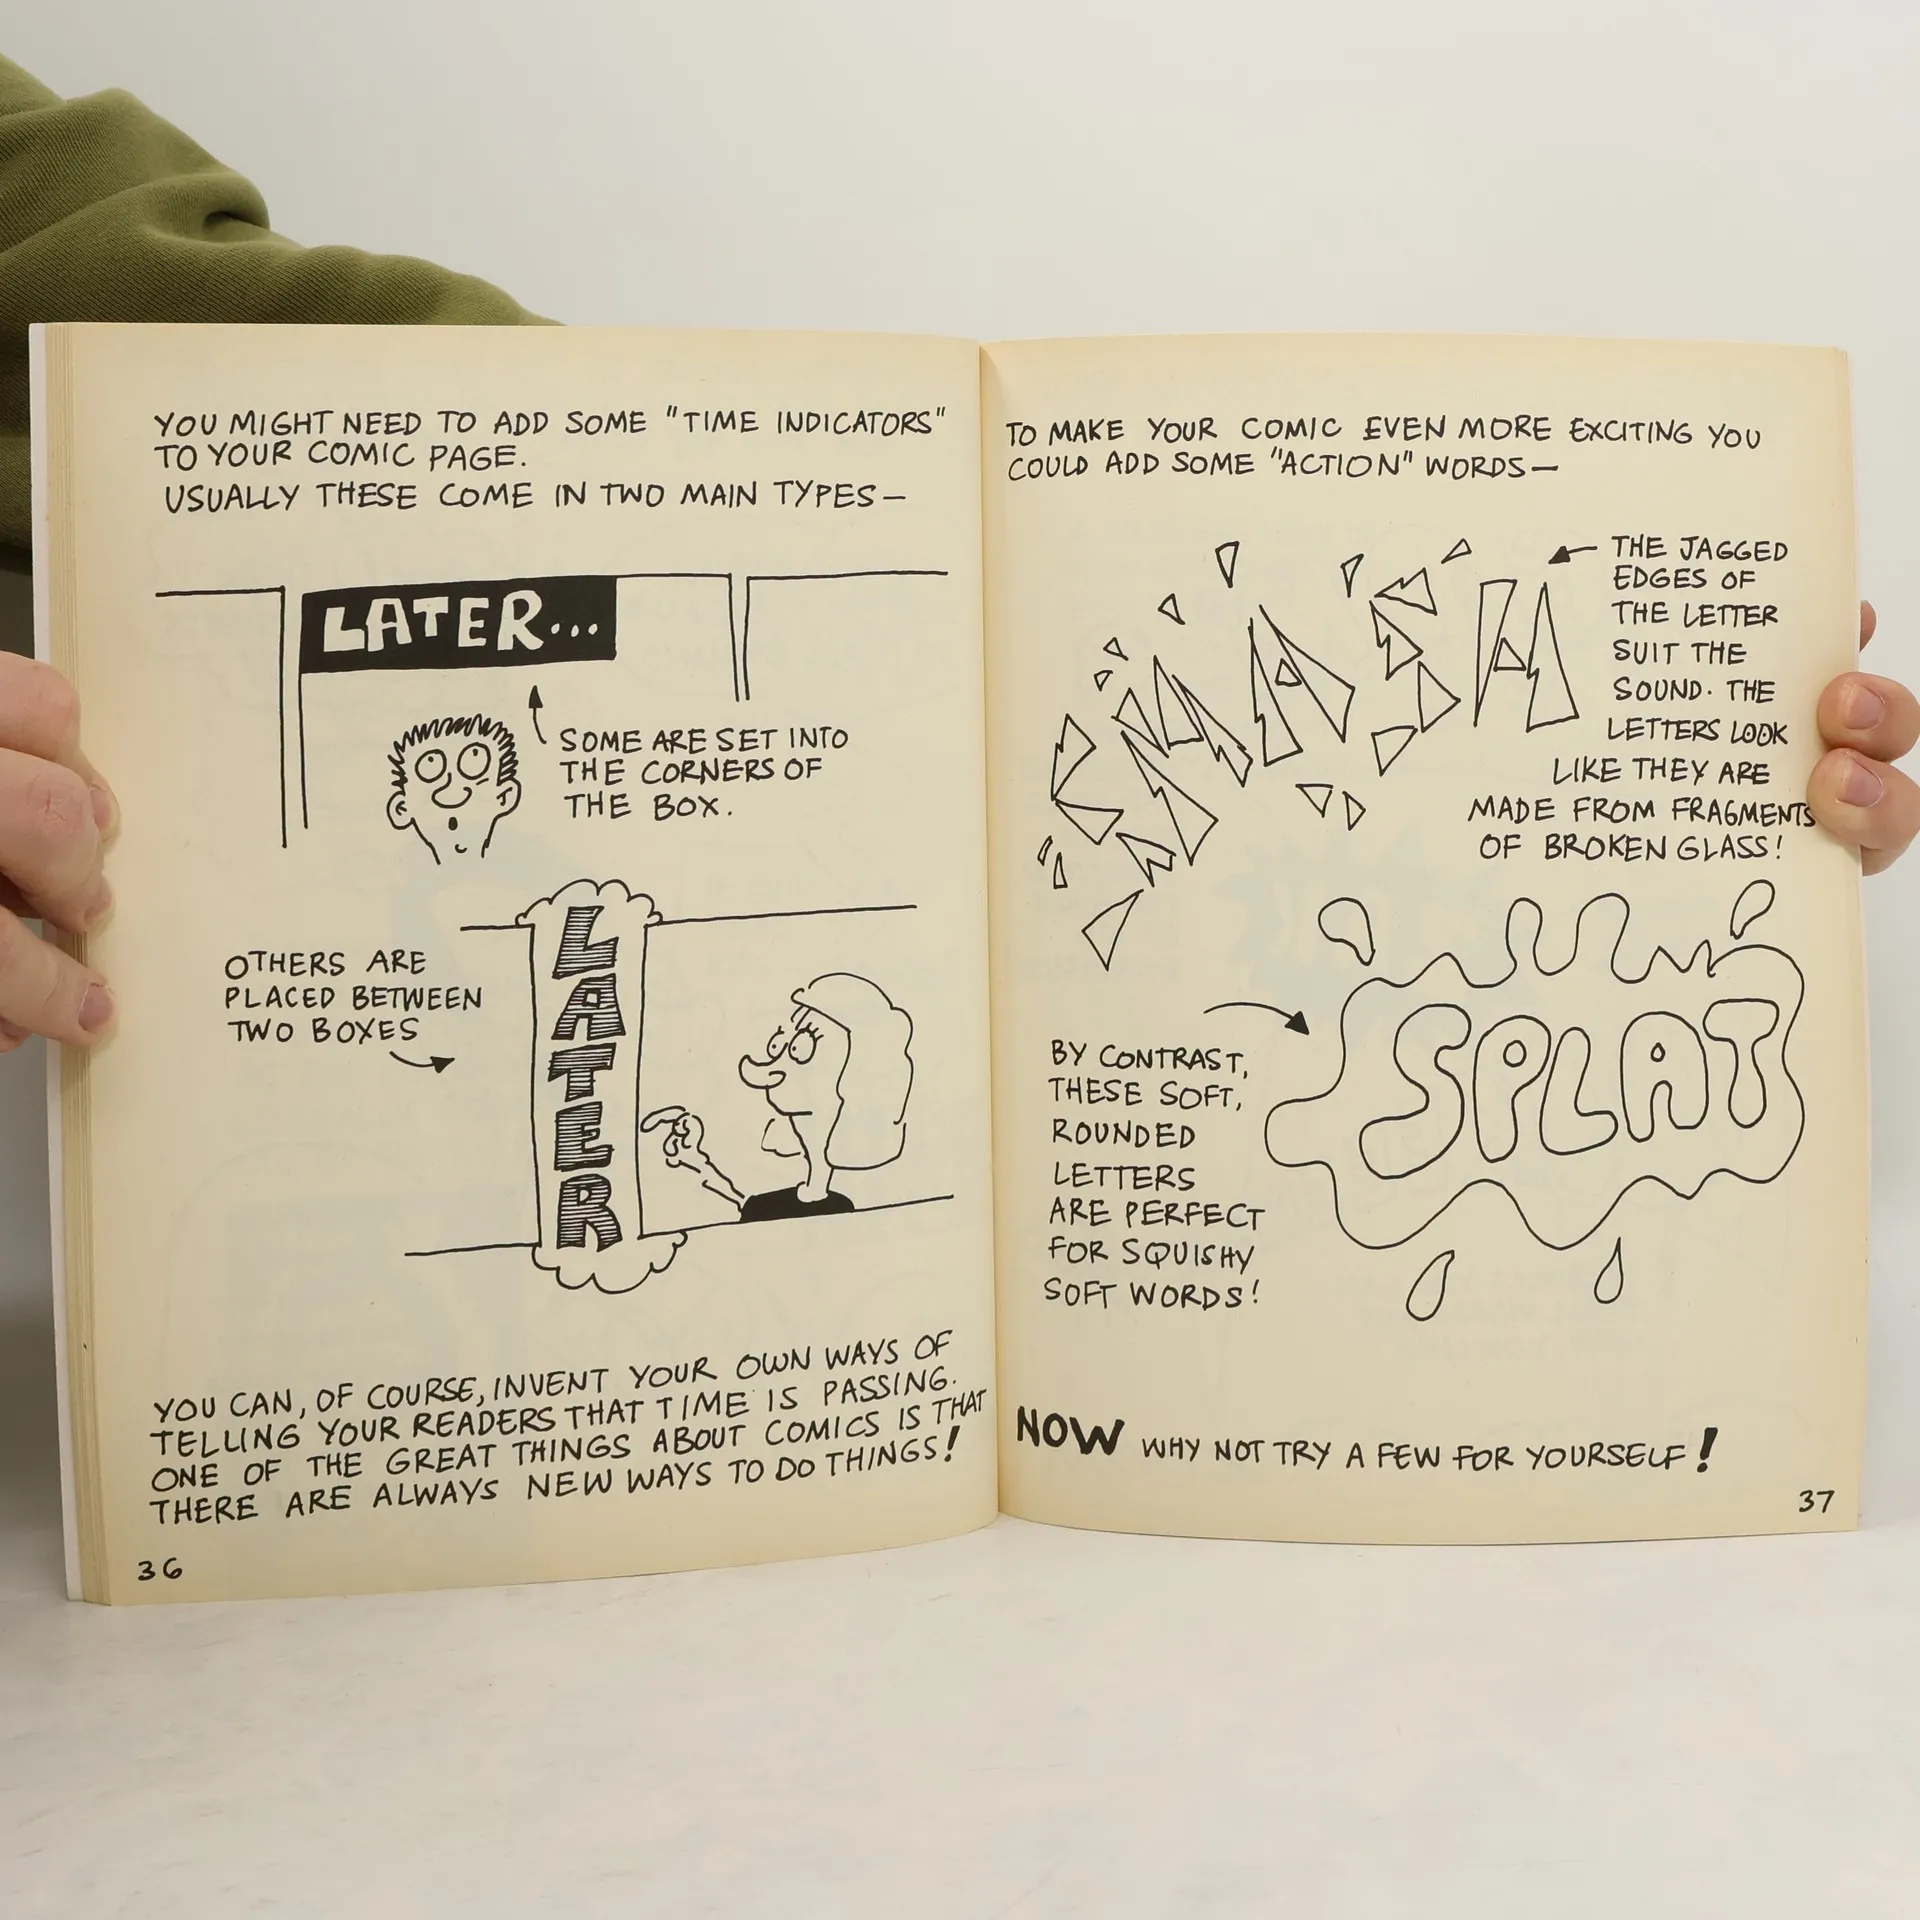 YOU MIGHT NEED TO ADD SOME "TIME INDICATORS"
TO YOUR COMIC PAGE.
USUALLY THESE COME IN TWO MAIN TYPES—
LATER...
SOME ARE SET INTO
THE CORNERS OF
THE BOX.
OTHERS ARE
PLACED BETWEEN
TWO BOXES
LATER
YOU CAN, OF COURSE, INVENT YOUR OWN WAYS OF
TELLING YOUR READERS THAT TIME IS PASSING.
ONE OF THE GREAT THINGS ABOUT COMICS IS THAT
THERE ARE ALWAYS NEW WAYS TO DO THINGS!
36
TO MAKE YOUR COMIC EVEN MORE EXCITING YOU
COULD ADD SOME "ACTION" WORDS—
SMASH
THE JAGGED
EDGES OF
THE LETTER
SUIT THE
SOUND. THE
LETTERS LOOK
LIKE THEY ARE
MADE FROM FRAGMENTS
OF BROKEN GLASS!
SPLAT
BY CONTRAST,
THESE SOFT,
ROUNDED
LETTERS
ARE PERFECT
FOR SQUISHY
SOFT WORDS!
NOW WHY NOT TRY A FEW FOR YOURSELF!
37